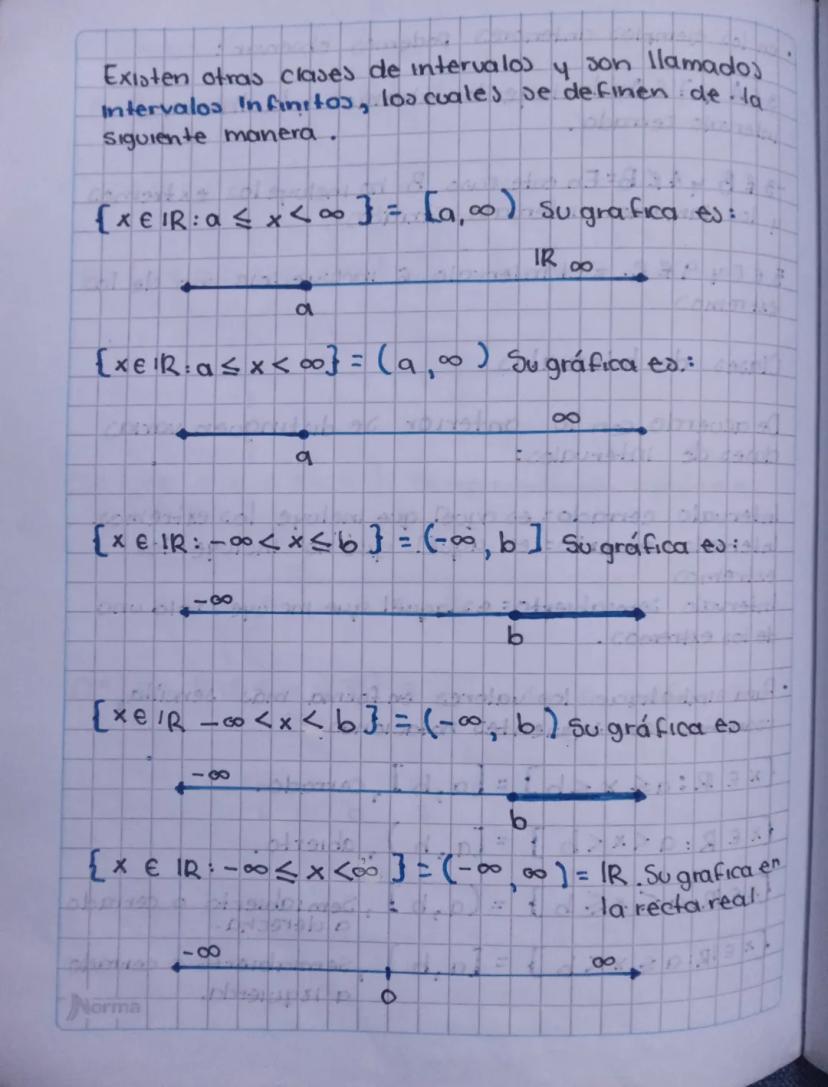 Existen otras clases de intervalos y son llamados
intervalos infinitos, los cuales se definen de la
siguiente manera.
{x ∈ IR: a ≤ x < ∞} = [a, ∞) Su grafica es:
IR ∞
a
{x ∈ IR: a ≤ x < ∞} = (a, ∞) Su gráfica es.:
∞
a
{x ∈ IR: -∞ < x ≤ b} = (-∞, b] Su gráfica es:
-∞
b
{x ∈ IR -∞ < x < b} = (-∞, b) Su gráfica es
-∞
b
{x ∈ IR: -∞ ≤ x < ∞} = (-∞, ∞) = IR. Su grafica en
la recta real
-∞ ∞
0
Norma